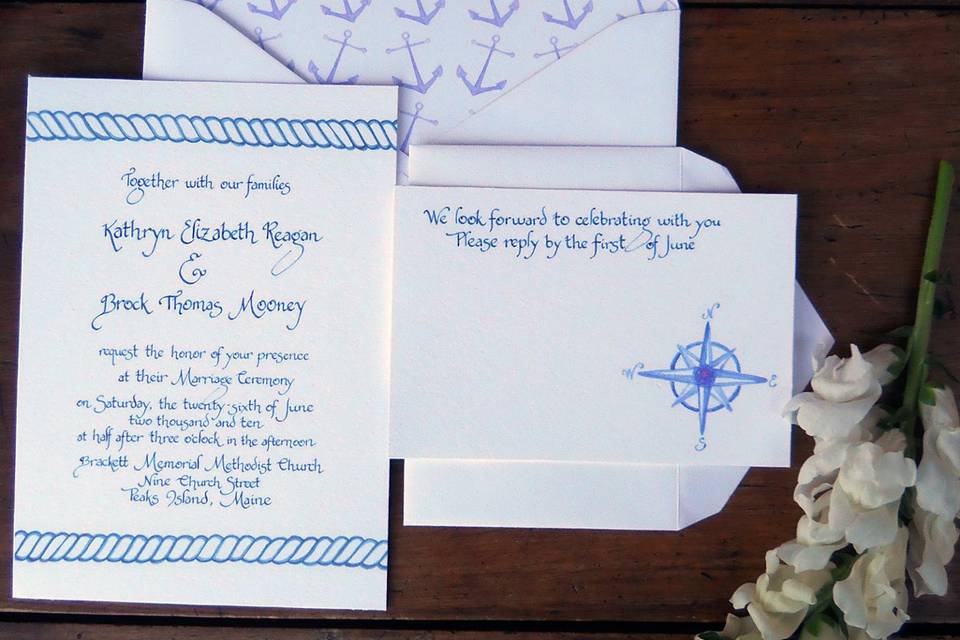 Together with our families
Kathryn Elizabeth Reagan
&
Brock Thomas Mooney
request the honor of your presence
at their Marriage Ceremony
on Saturday, the twenty sixth of June
two thousand and ten
at half after three o'clock in the afternoon
Brackett Memorial Methodist Church
Nine Church Street
Peaks Island, Maine
We look forward to celebrating with you
Please reply by the first of June
N
W E
S